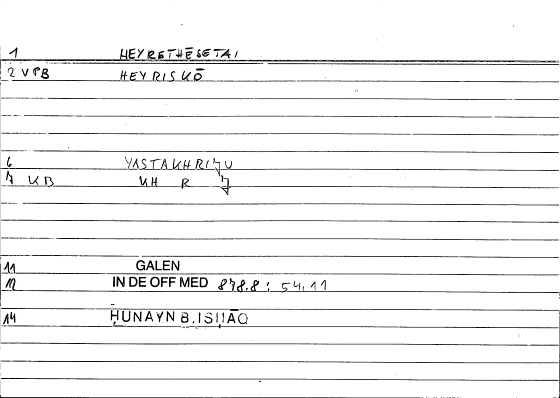 1 HEYRETHĒSETAI
2 VPB HEYRISKŌ
6 YASTAKHRIǦU
7 KB KH R Ǧ
11 GALEN
12 IN DE OFF MED 878.8 : 54.11
14 ḤUNAYN B. ISḤĀQ